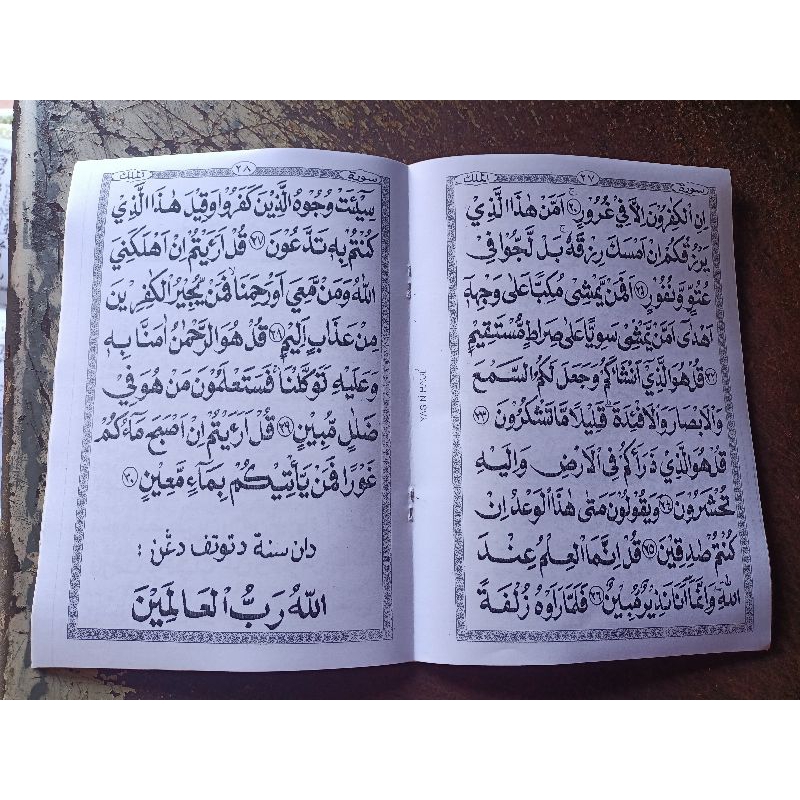 سورة ٢٧ الملك
اِنِ الْكٰفِرُوْنَ اِلَّا فِيْ غُرُوْرٍ ۚ ٢٠ اَمَّنْ هٰذَا الَّذِيْ
يَرْزُقُكُمْ اِنْ اَمْسَكَ رِزْقَهٗ ۚ بَلْ لَّجُّوْا فِيْ
عُتُوٍّ وَّنُفُوْرٍ ٢١ اَفَمَنْ يَّمْشِيْ مُكِبًّا عَلٰى وَجْهِهٖ
اَهْدٰى اَمَّنْ يَّمْشِيْ سَوِيًّا عَلٰى صِرَاطٍ مُّسْتَقِيْمٍ
٢٢ قُلْ هُوَ الَّذِيْ اَنْشَاَكُمْ وَجَعَلَ لَكُمُ السَّمْعَ
وَالْاَبْصَارَ وَالْاَفْئِدَةَ ۗ قَلِيْلًا مَّا تَشْكُرُوْنَ ٢٣
قُلْ هُوَ الَّذِيْ ذَرَاَكُمْ فِى الْاَرْضِ وَاِلَيْهِ
تُحْشَرُوْنَ ٢٤ وَيَقُوْلُوْنَ مَتٰى هٰذَا الْوَعْدُ اِنْ
كُنْتُمْ صٰدِقِيْنَ ٢٥ قُلْ اِنَّمَا الْعِلْمُ عِنْدَ
اللّٰهِ وَاِنَّمَآ اَنَا۠ نَذِيْرٌ مُّبِيْنٌ ٢٦ فَلَمَّا رَاَوْهُ زُلْفَةً
سورة ٢٨ الملك
سِيْۤـَٔتْ وُجُوْهُ الَّذِيْنَ كَفَرُوْا وَقِيْلَ هٰذَا الَّذِيْ
كُنْتُمْ بِهٖ تَدَّعُوْنَ ٢٧ قُلْ اَرَءَيْتُمْ اِنْ اَهْلَكَنِيَ
اللّٰهُ وَمَنْ مَّعِيَ اَوْ رَحِمَنَا ۙ فَمَنْ يُّجِيْرُ الْكٰفِرِيْنَ
مِنْ عَذَابٍ اَلِيْمٍ ٢٨ قُلْ هُوَ الرَّحْمٰنُ اٰمَنَّا بِهٖ
وَعَلَيْهِ تَوَكَّلْنَا ۚ فَسَتَعْلَمُوْنَ مَنْ هُوَ فِيْ
ضَلٰلٍ مُّبِيْنٍ ٢٩ قُلْ اَرَءَيْتُمْ اِنْ اَصْبَحَ مَآؤُكُمْ
غَوْرًا فَمَنْ يَّأْتِيْكُمْ بِمَآءٍ مَّعِيْنٍ ٣٠
دان سنة دتوتف دغن :
اَللّٰهُ رَبُّ الْعَالَمِيْنَ